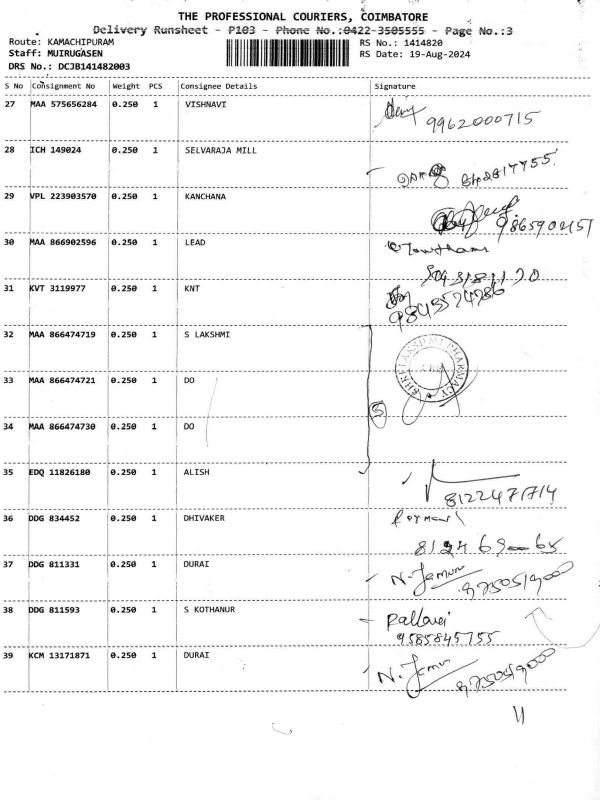 THE PROFESSIONAL COURIERS, COIMBATORE
Delivery Runsheet - P103 - Phone No.:0422-3505555 - Page No.:3
Route: KAMACHIPURAM RS No.: 1414820
Staff: MUIRUGASEN RS Date: 19-Aug-2024
DRS No.: DCJB141482003
S No Consignment No Weight PCS Consignee Details Signature
27 MAA 575656284 0.250 1 VISHNAVI
9962000715
28 ICH 149024 0.250 1 SELVARAJA MILL
29 VPL 223903570 0.250 1 KANCHANA
30 MAA 866902596 0.250 1 LEAD
31 KVT 3119977 0.250 1 KNT
9843574286
32 MAA 866474719 0.250 1 S LAKSHMI
SHRI LAKSHMI PHARMACY
33 MAA 866474721 0.250 1 DO
5
34 MAA 866474730 0.250 1 DO
35 EDQ 11826180 0.250 1 ALISH
36 DDG 834452 0.250 1 DHIVAKER
37 DDG 811331 0.250 1 DURAI
N. Jamun
38 DDG 811593 0.250 1 S KOTHANUR
Pallavi
9585845755
39 KCM 13171871 0.250 1 DURAI
N. Jamun